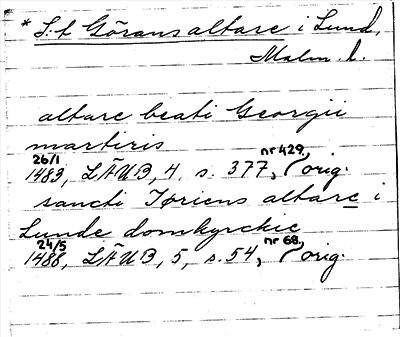 * S:t Göransaltare i Lund,
Malm. l.
altare beati Georgii
martiris
26/1 nr 429.
1483, LÄUB, 4, s. 377, orig.
sancti Iøriens altare i
Lunde domkyrckie
24/5 nr 68.
1488, LÄUB, 5, s. 54, orig.